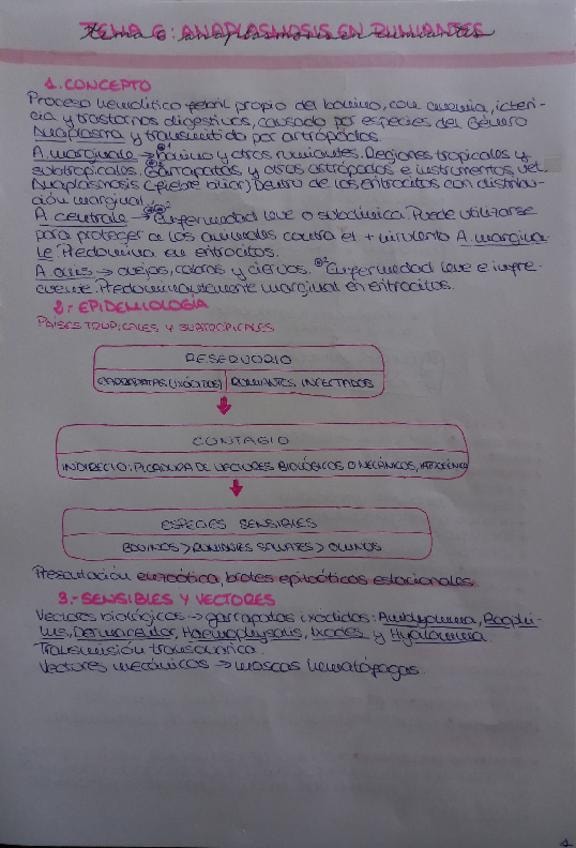 TEMA 6: ANAPLASMOSIS EN RUMIANTES
1. CONCEPTO
Proceso hemolítico febril propio del bovino, con anemia, icteri-
cia y trastornos digestivos, causado por especies del género
Anaplasma y transmitido por artrópodos.
A. marginale → Bovino y otros rumiantes. Regiones tropicales y
subtropicales. Garrapatas y otros artrópodos e instrumentos vet.
Anaplasmosis (fiebre biliar) Dentro de los eritrocitos con distribu-
ción marginal.
A centrale → Enfermedad leve o subclínica. Puede utilizarse
para proteger a los animales contra el + virulento A. margina-
le. Predomina en eritrocitos.
A ovis → ovejas, cabras y ciervos. Enfermedad leve e infre-
cuente. Predominantemente marginal en eritrocitos.
2.- EPIDEMIOLOGÍA
PAÍSES TROPICALES Y SUBTROPICALES
RESERVORIO
GARRAPATAS (IXÓDIDOS) RUMIANTES INFECTADOS
CONTAGIO
INDIRECTO: PICADURA DE VECTORES BIOLÓGICOS O MECÁNICOS,
ESPECIES SENSIBLES
BOVINOS > RUMIANTES SALVAJES > OVINOS
Presentación enzoótica, brotes epizoóticos estacionales
3.- SENSIBLES Y VECTORES
Vectores biológicos → garrapatas ixódidos: Amblyomma, Boophi-
lus, Dermacentor, Haemaphysalis, Ixodes y Hyalomma
Transmisión transovarica.
Vectores mecánicos → moscas hematófagas
1